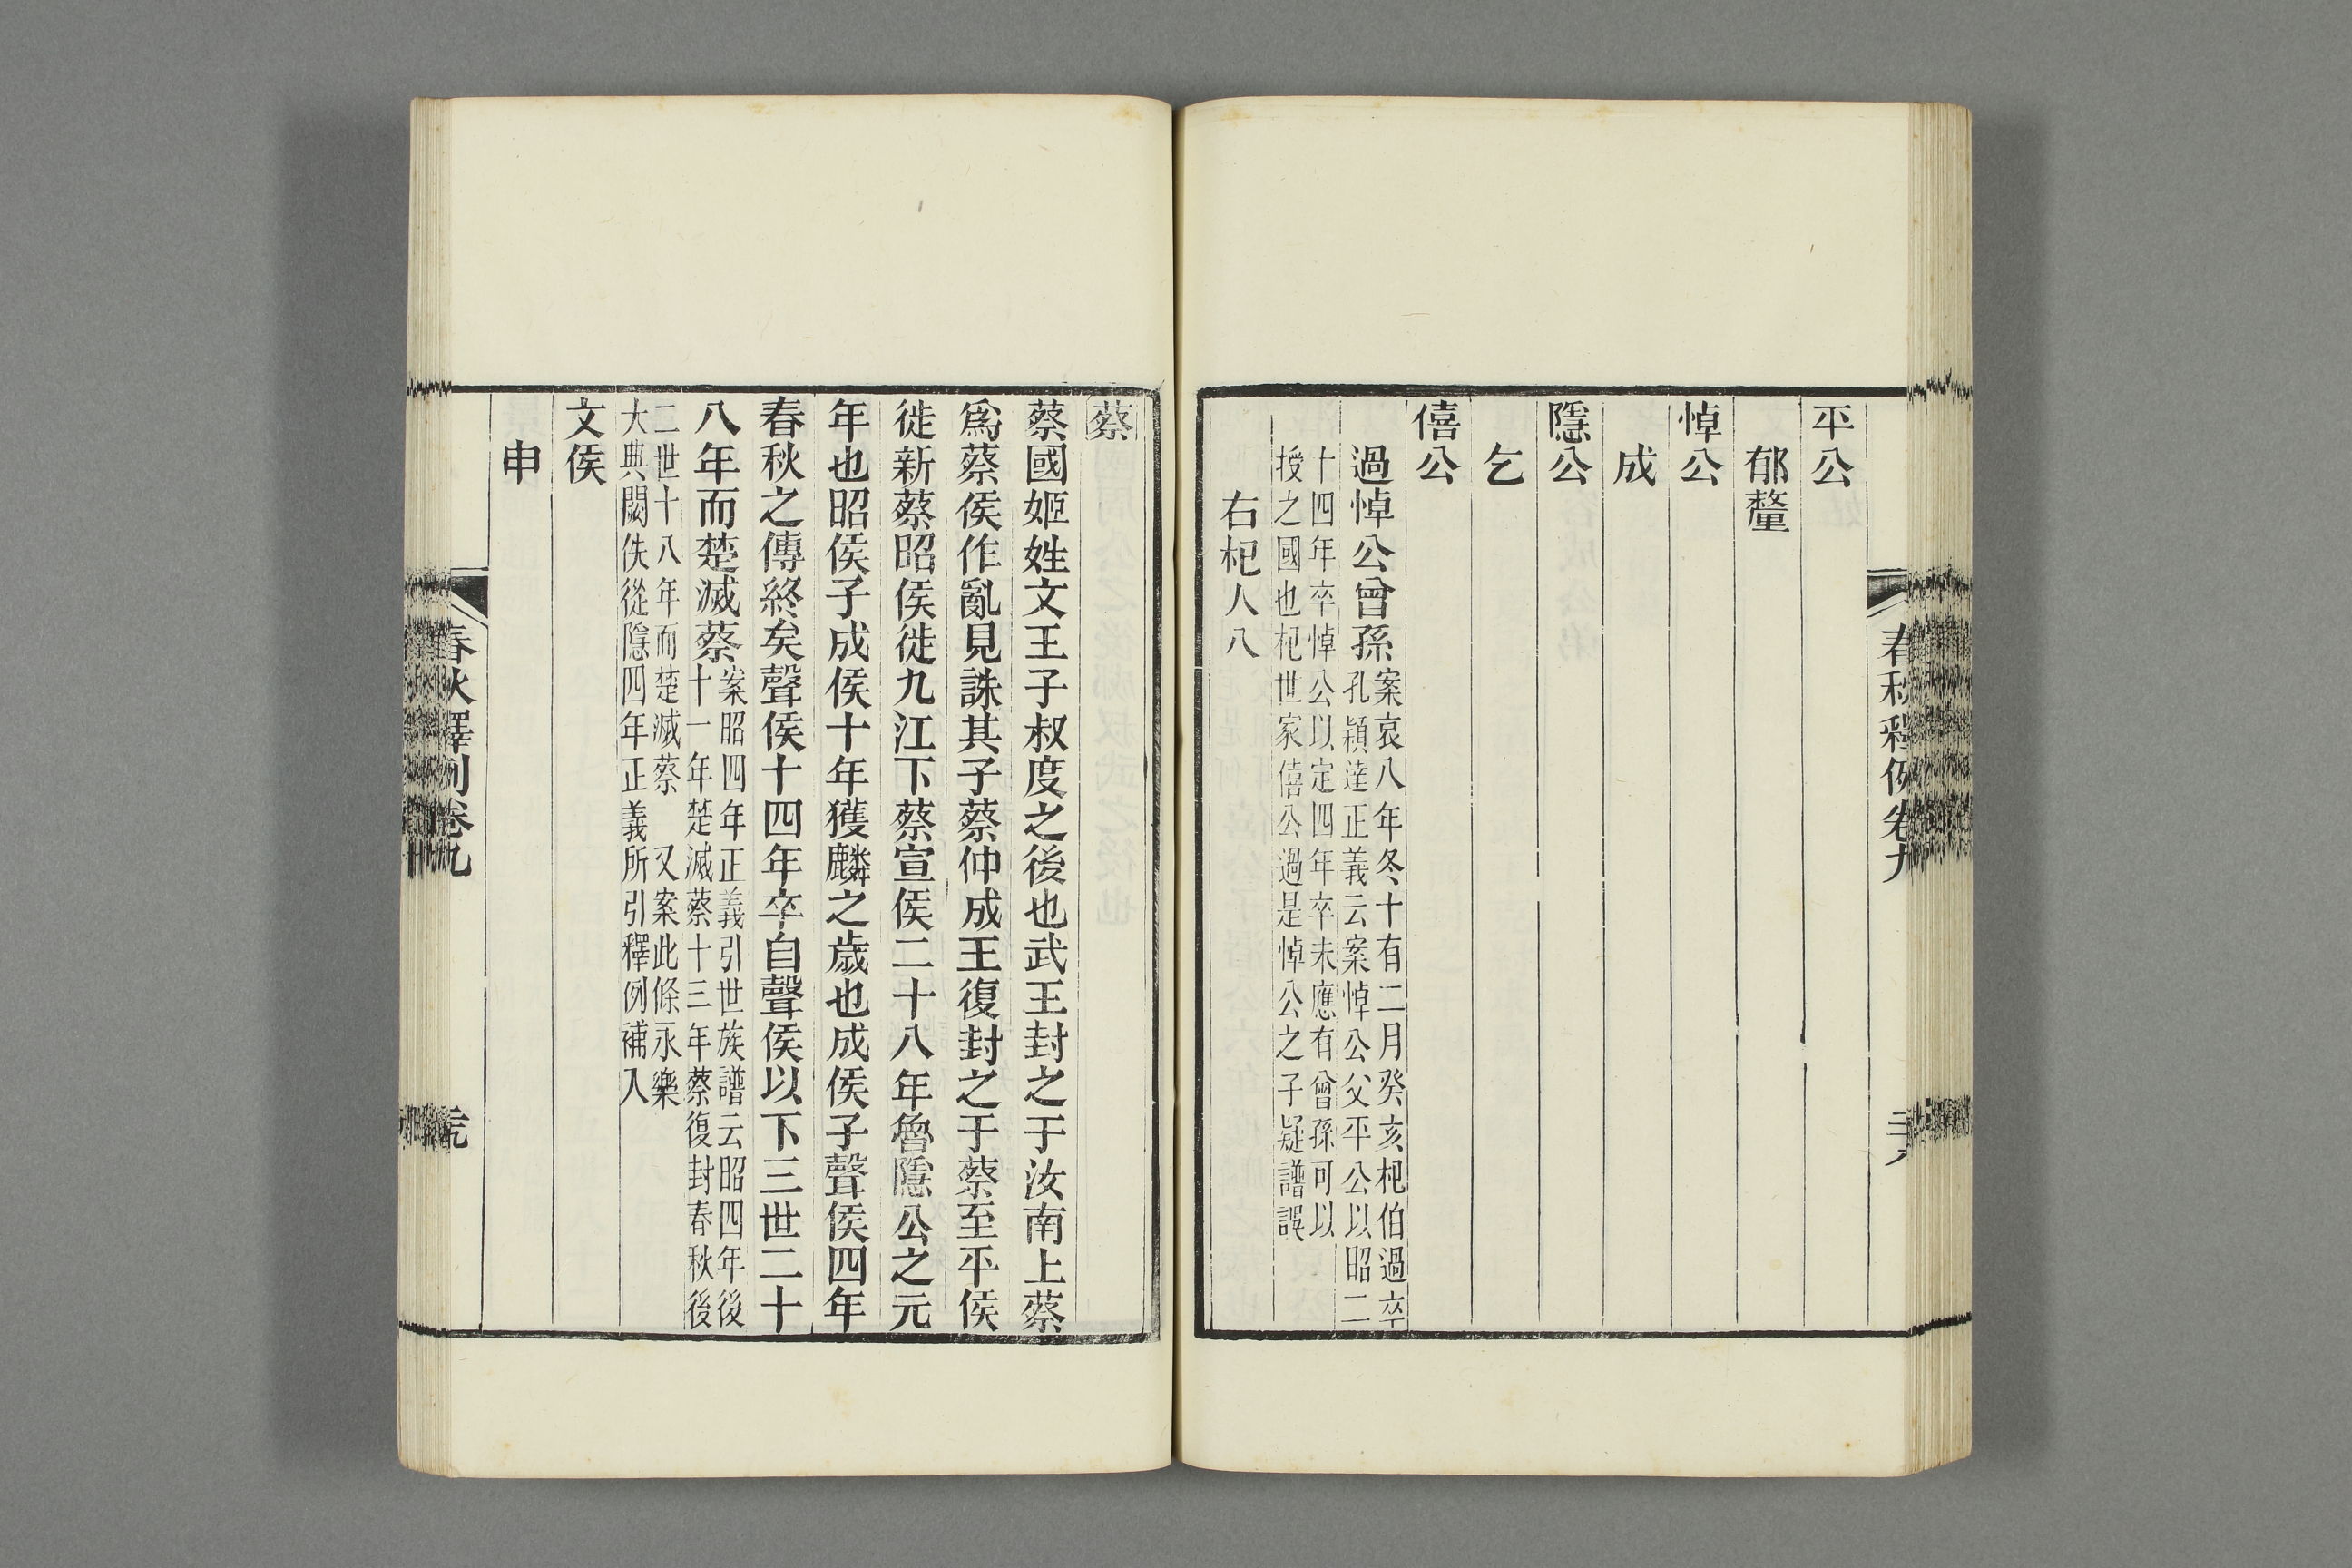 平公
郁釐
悼公
成
隱公
乞
僖公
過悼公曾孫
案哀八年冬十有二月癸亥杞伯過卒
孔穎達正義云案悼公父平公以昭二
十四年卒悼公以定四年卒未應有曾孫可以
授之國也杞世家僖公過是悼公之子疑譜誤
右杞人八
春秋釋例卷九
蔡
蔡國姬姓文王子叔度之後也武王封之于汝南上蔡
爲蔡侯作亂見誅其子蔡仲成王復封之于蔡至平侯
徙新蔡昭侯徙九江下蔡宣侯二十八年魯隱公之元
年也昭侯子成侯十年獲麟之歲也成侯子聲侯四年
春秋之傳終矣聲侯十四年卒自聲侯以下三世二十
八年而楚滅蔡
案昭四年正義引世族譜云昭四年後
十一年楚滅蔡十三年蔡復封春秋後
二世十八年而楚滅蔡 又案此條永樂
大典闕佚從隱四年正義所引釋例補入
文侯
申
春秋釋例卷九